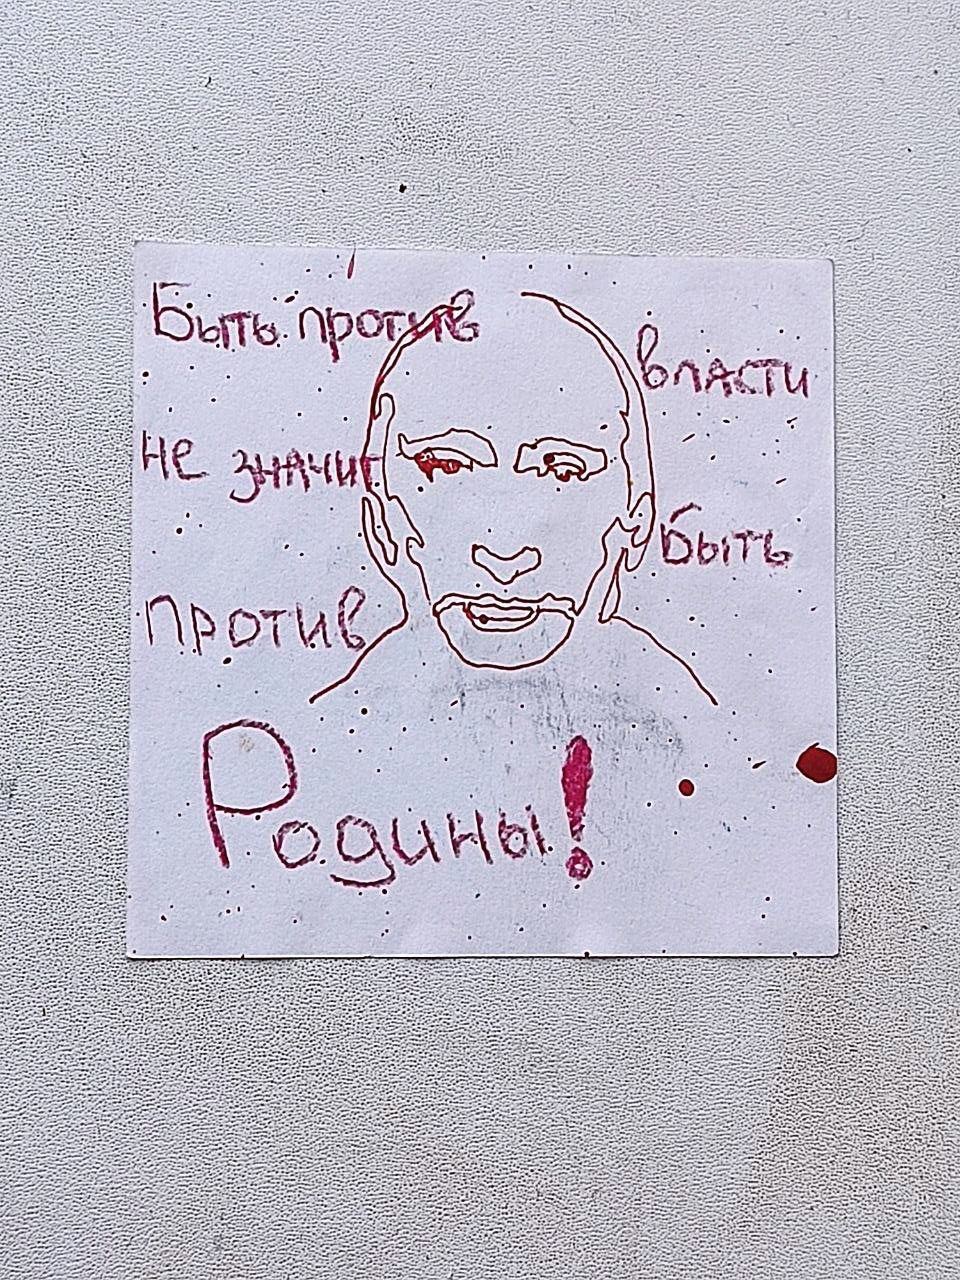 Быть против власти
не значит быть
против
Родины!